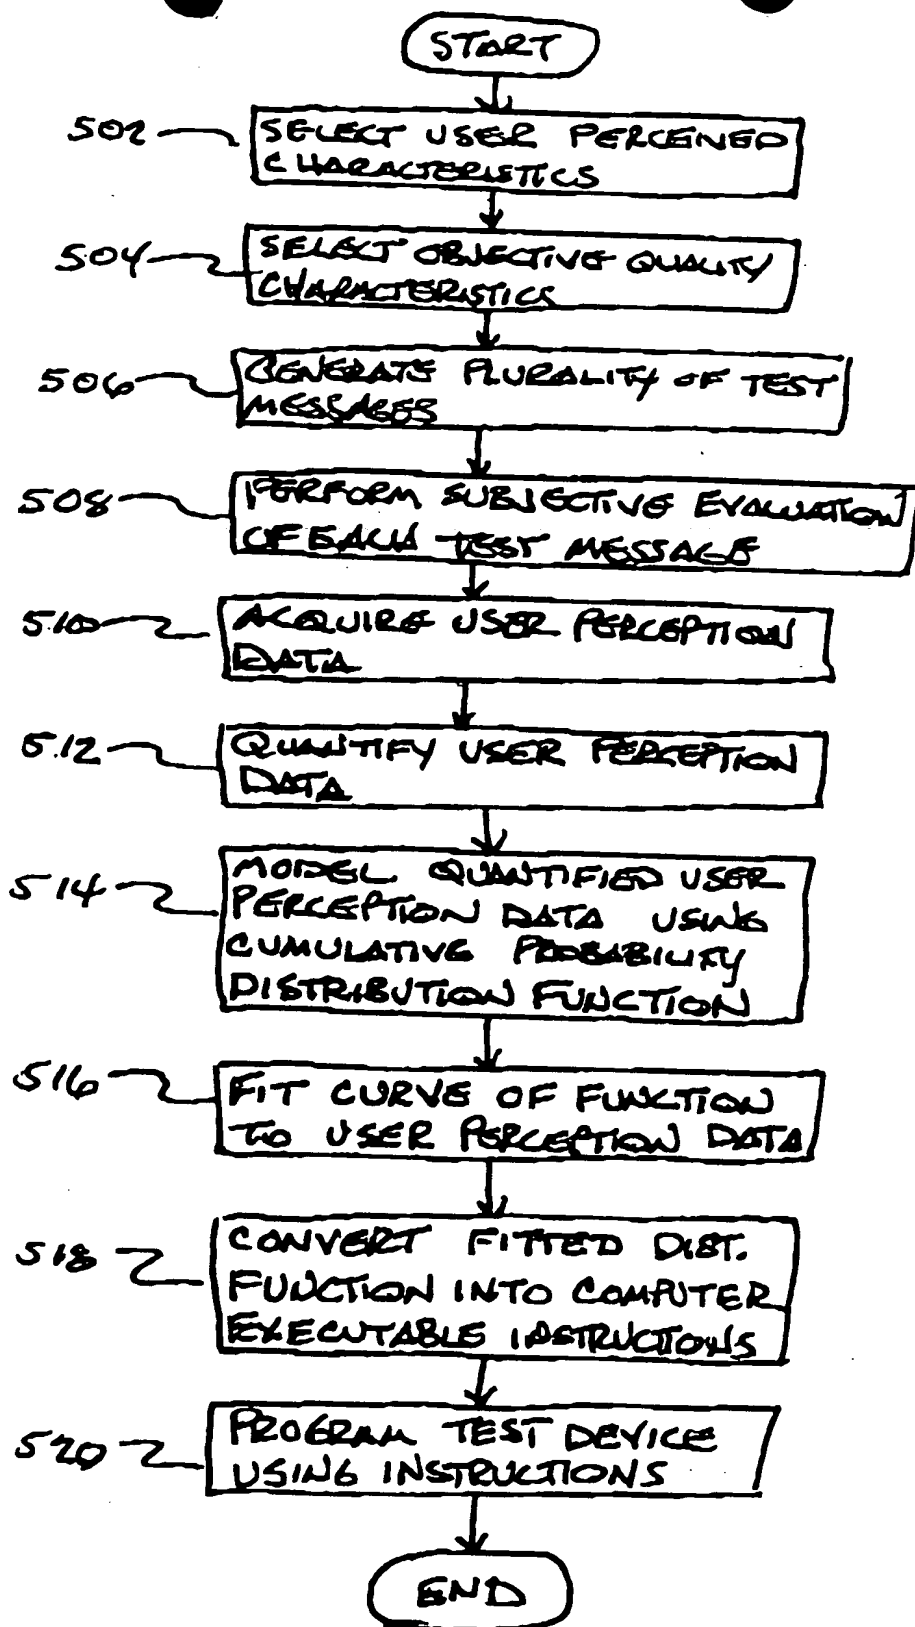 START
502
SELECT USER PERCEIVED
CHARACTERISTICS
504
SELECT OBJECTIVE QUALITY
CHARACTERISTICS
506
GENERATE PLURALITY OF TEST
MESSAGES
508
PERFORM SUBJECTIVE EVALUATION
OF EACH TEST MESSAGE
510
ACQUIRE USER PERCEPTION
DATA
512
QUANTIFY USER PERCEPTION
DATA
514
MODEL QUANTIFIED USER
PERCEPTION DATA USING
CUMULATIVE PROBABILITY
DISTRIBUTION FUNCTION
516
FIT CURVE OF FUNCTION
TO USER PERCEPTION DATA
518
CONVERT FITTED DIST.
FUNCTION INTO COMPUTER
EXECUTABLE INSTRUCTIONS
520
PROGRAM TEST DEVICE
USING INSTRUCTIONS
END